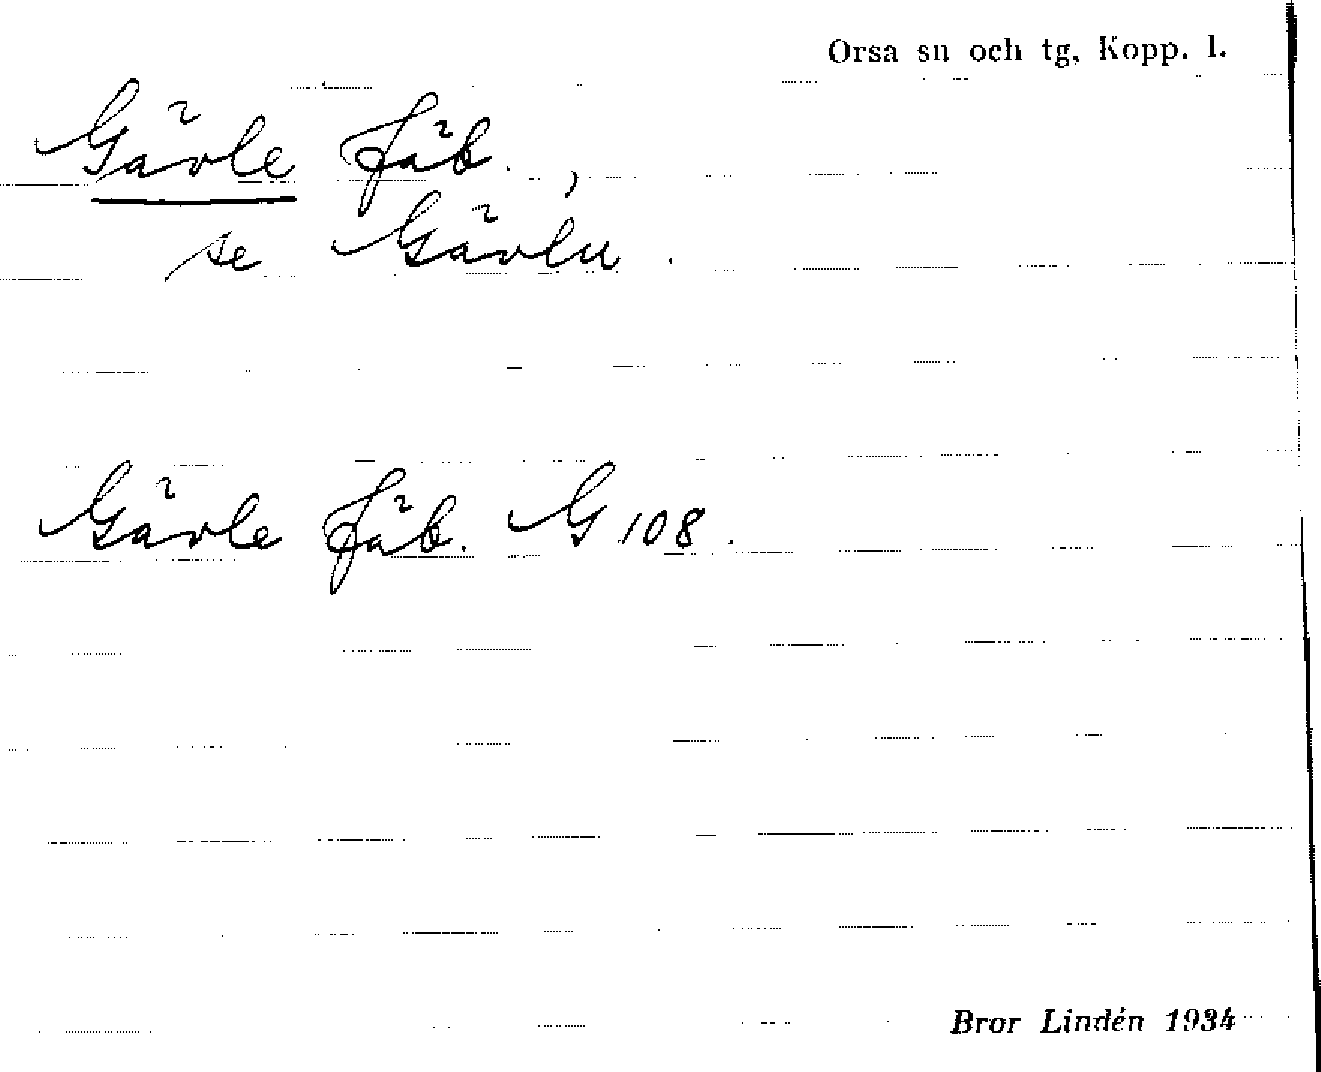 Orsa sn och tg, Kopp. l.
Gävle fäb.,
se Gävlu.
Gävle fäb. G 108.
Bror Lindén 1934